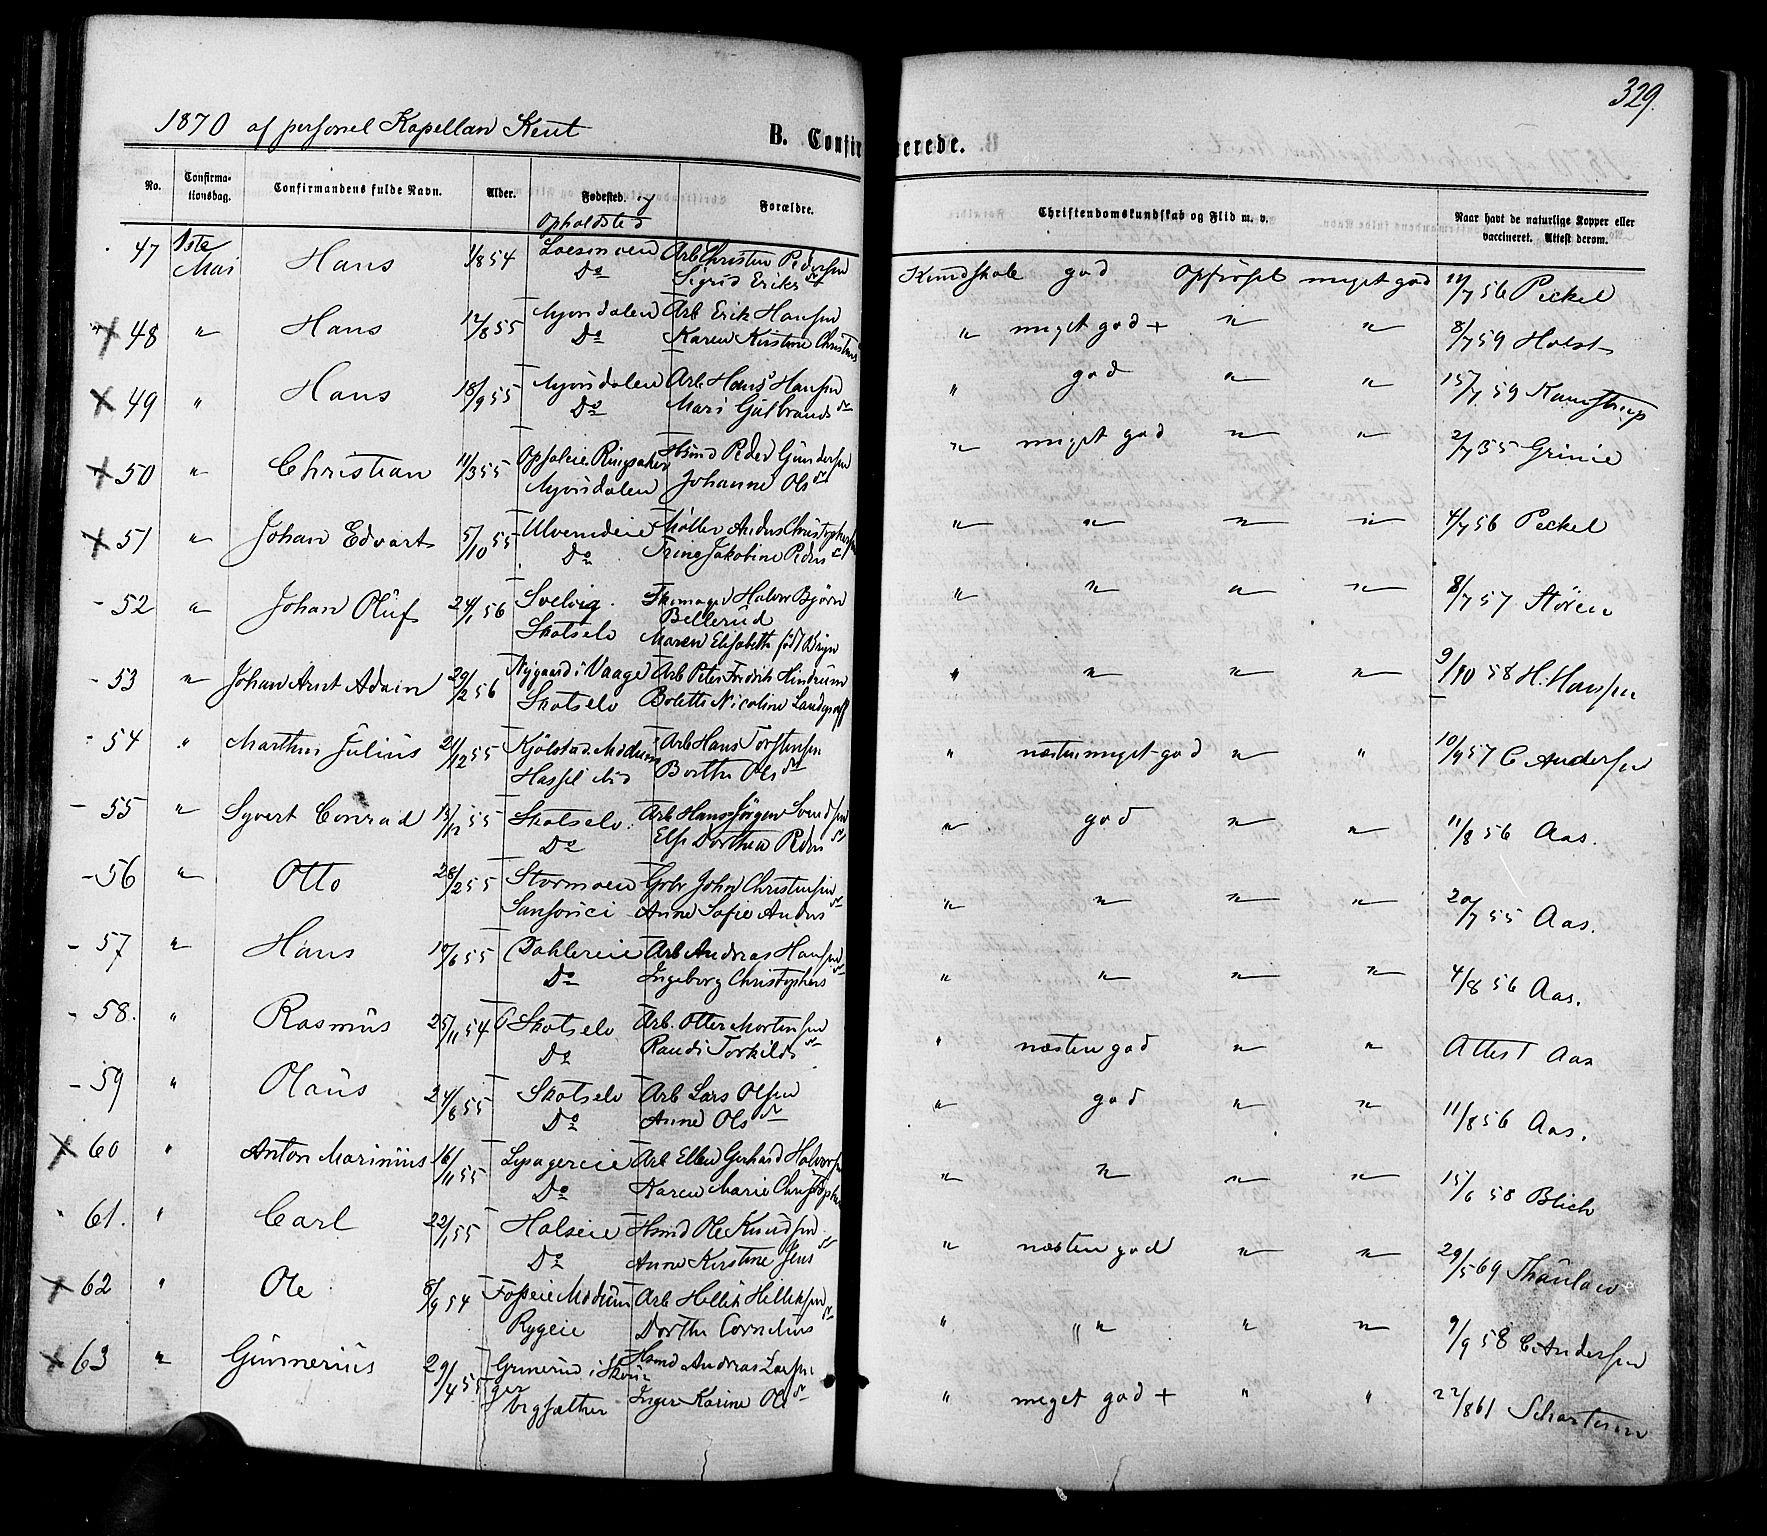 329.
1870 af personel Kapellan Kent
B. Confirmerede.
No. Confirmationsdag. Confirmandens fulde Navn. Alder. Fødested. og Opholdsted Forældre. Christendomskundskab og Flid m. v. Naar havt de naturlige Kopper eller vaccineret. Attest derom.
47 1ste Mai Hans 1/8 54 Loesmoen Arb Christen Pedersen Kundskab god Opførsel meget god 11/7 56 Peckel
Do Sigrid Eriks dt
48 " Hans 12/8 55 Mjøndalen Arb Erik Hansen " meget god + " " 8/7 59 Holst
Do Karen Kirstine Christens
49 " Hans 18/9 55 Mjøndalen Arb Hans Hansen " god " " 15/7 59 Kamstrup
Do Mari Gulbrands dr
50 " Christian 11/3 55 Opsaleie Ringsaker Hsmd Peder Gundersen " meget god " " 2/7 35 Grimie
Mjøndalen Johanne Ols dr
51 " Johan Edvart 5/10 55 Ulverudeie Møller Anders Christophersen " " " " 4/7 56 Peckel
Do Trine Jakobine Peders dt
52 " Johan Oluf 24/1 56 Svelvig Skomager Halvor Bjørn " " " " 8/7 57 Støren
Skotselv Bellerud
Maren Elisabeth født Bryn
53 " Johan Arnt Adam 29/2 56 Nygaard i Vaage Arb Peter Fredrik Hindrum " " " " 9/10 58 H. Hanssen
Skotselv Bolette Nicoline Landgraff
54 " Marthin Julius 21/12 55 Kjølstad Modum Arb Hans Torstensen " næsten meget god " " 10/9 57 C Andersen
Hassel Berthe Ols dr
55 " Syvert Conrad 13/12 55 Skotselv Arb Hans Jørgen Svendsen " god " " 11/8 56 Aas.
Do Else Dorthea Peders dr
56 " Otto 28/2 55 Stormoen Grbr John Christensen " " " " 20/7 55 Aas.
Anne Sofie Anders dr
57 " Hans 10/6 55 Dahlereie Arb Andreas Hansen " " " " 4/8 56 Aas.
Do Ingeborg Christophers dr
58. " Rasmus 25/11 54 Skotselv Arb. Otter Mortensen " næsten god " " Attest Aas
Do Randi Torkilds dr
59 " Olaus 24/8 55 Skotselv Arb Lars Olsen " god " " 11/8 56 Aas.
Do Anne Ols dr
60 " Anton Marinius 16/11 55 Lysagereie Arb Ellen Gerhard Halvorsen " " " " 15/6 58 Blich
Do Karen Marie Christophers
61. " Carl 22/1 55 Halseie Hsmd Ole Knudsen " næsten god " " 29/5 69 Thaulow
Do Anne Kirstine Jens dr
62 " Ole 8/9 54 Fosseie Modum Arb Hellik Helliksen " " " " 9/9 58 C. Andersen
Rygeie Dorthe Cornelius dr
63 " Gunnerius 29/4 55 Grinerud i Skoüger Hsmd Andreas Larsen " meget god + " " 22/8 61 Scharteson
Vegsætter Inger Karine Ols dr